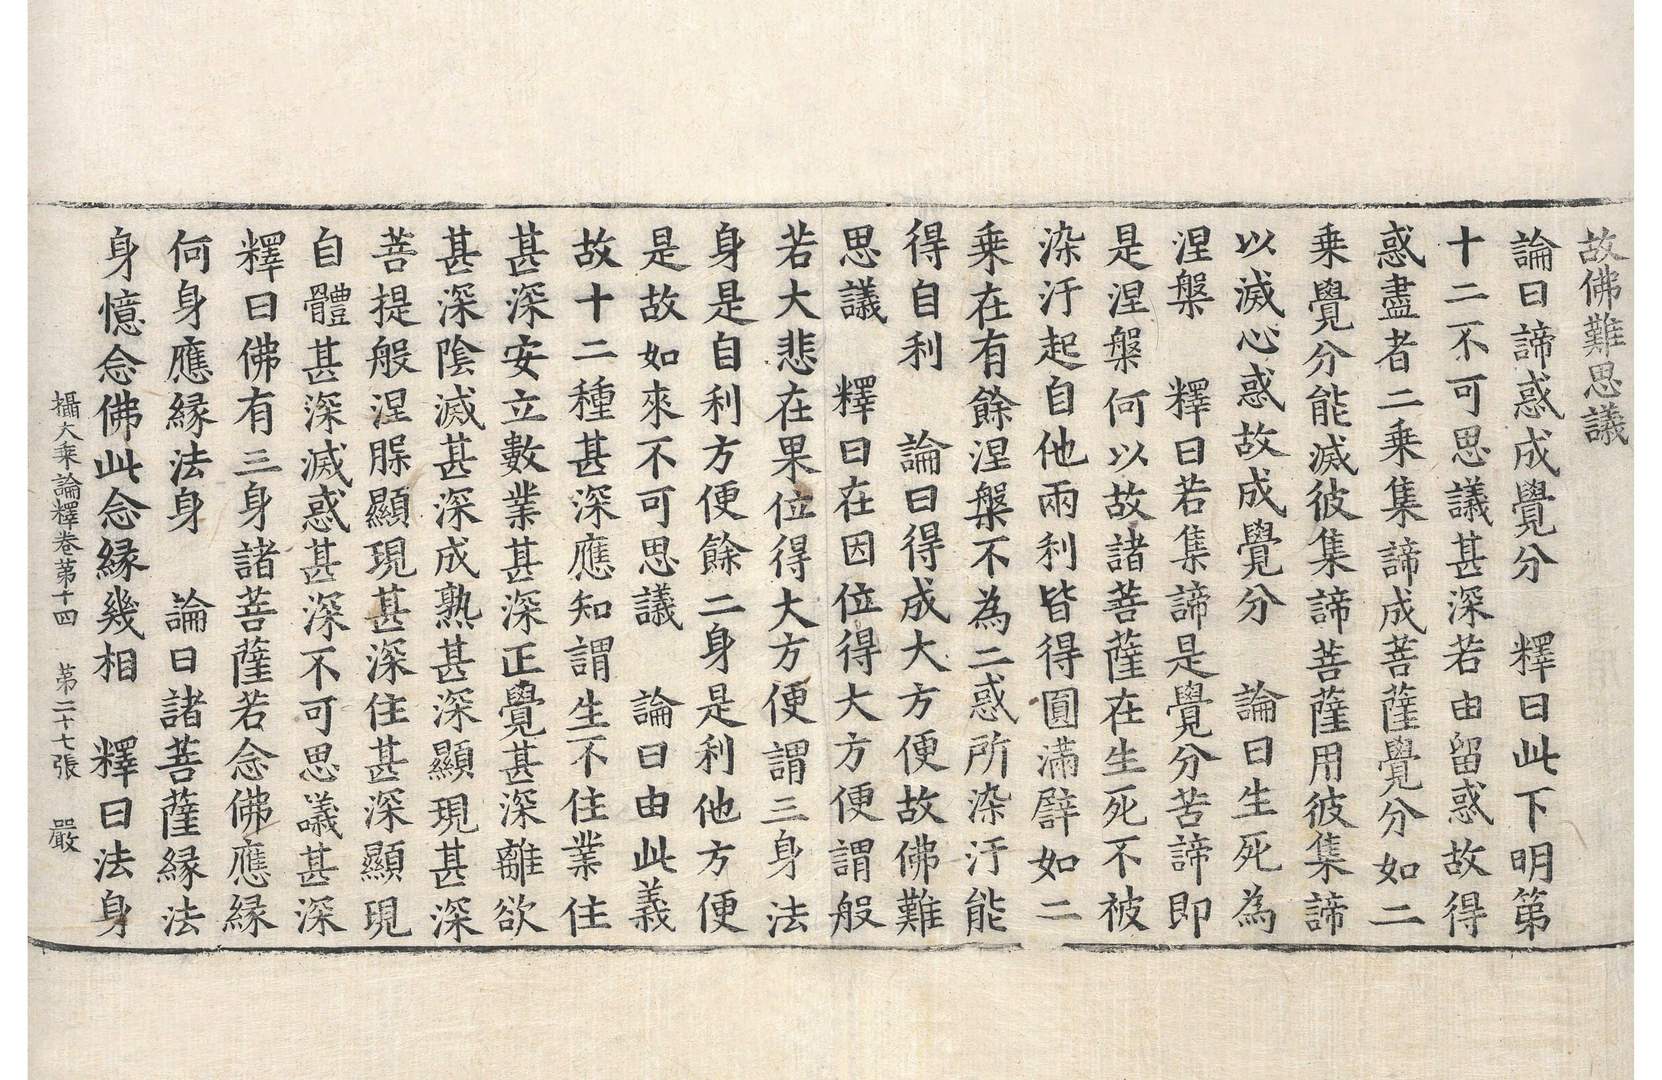 故佛難思議
論曰諦惑成覺分　釋曰此下明第
十二不可思議甚深若由留惑故得
惑盡者二乗集諦成菩薩覺分如二
乗覺分能滅彼集諦菩薩用彼集諦
以滅心惑故成覺分　論曰生死為
涅槃　釋曰若集諦是覺分苦諦即
是涅槃何以故諸菩薩在生死不被
染汙起自他兩利皆得圓滿譬如二
乗在有餘涅槃不為二惑所染汙能
得自利　論曰得成大方便故佛難
思議　釋曰在因位得大方便謂般
若大悲在果位得大方便謂三身法
身是自利方便餘二身是利他方便
是故如來不可思議　論曰由此義
故十二種甚深應知謂生不住業住
甚深安立數業甚深正覺甚深離欲
甚深陰滅甚深成熟甚深顯現甚深
菩提般涅槃顯現甚深住甚深顯現
自體甚深滅惑甚深不可思議甚深
釋曰佛有三身諸菩薩若念佛應縁
何身應縁法身　論曰諸菩薩縁法
身憶念佛此念縁幾相　釋曰法身
攝大乗論釋卷第十四　第二十七張　嚴